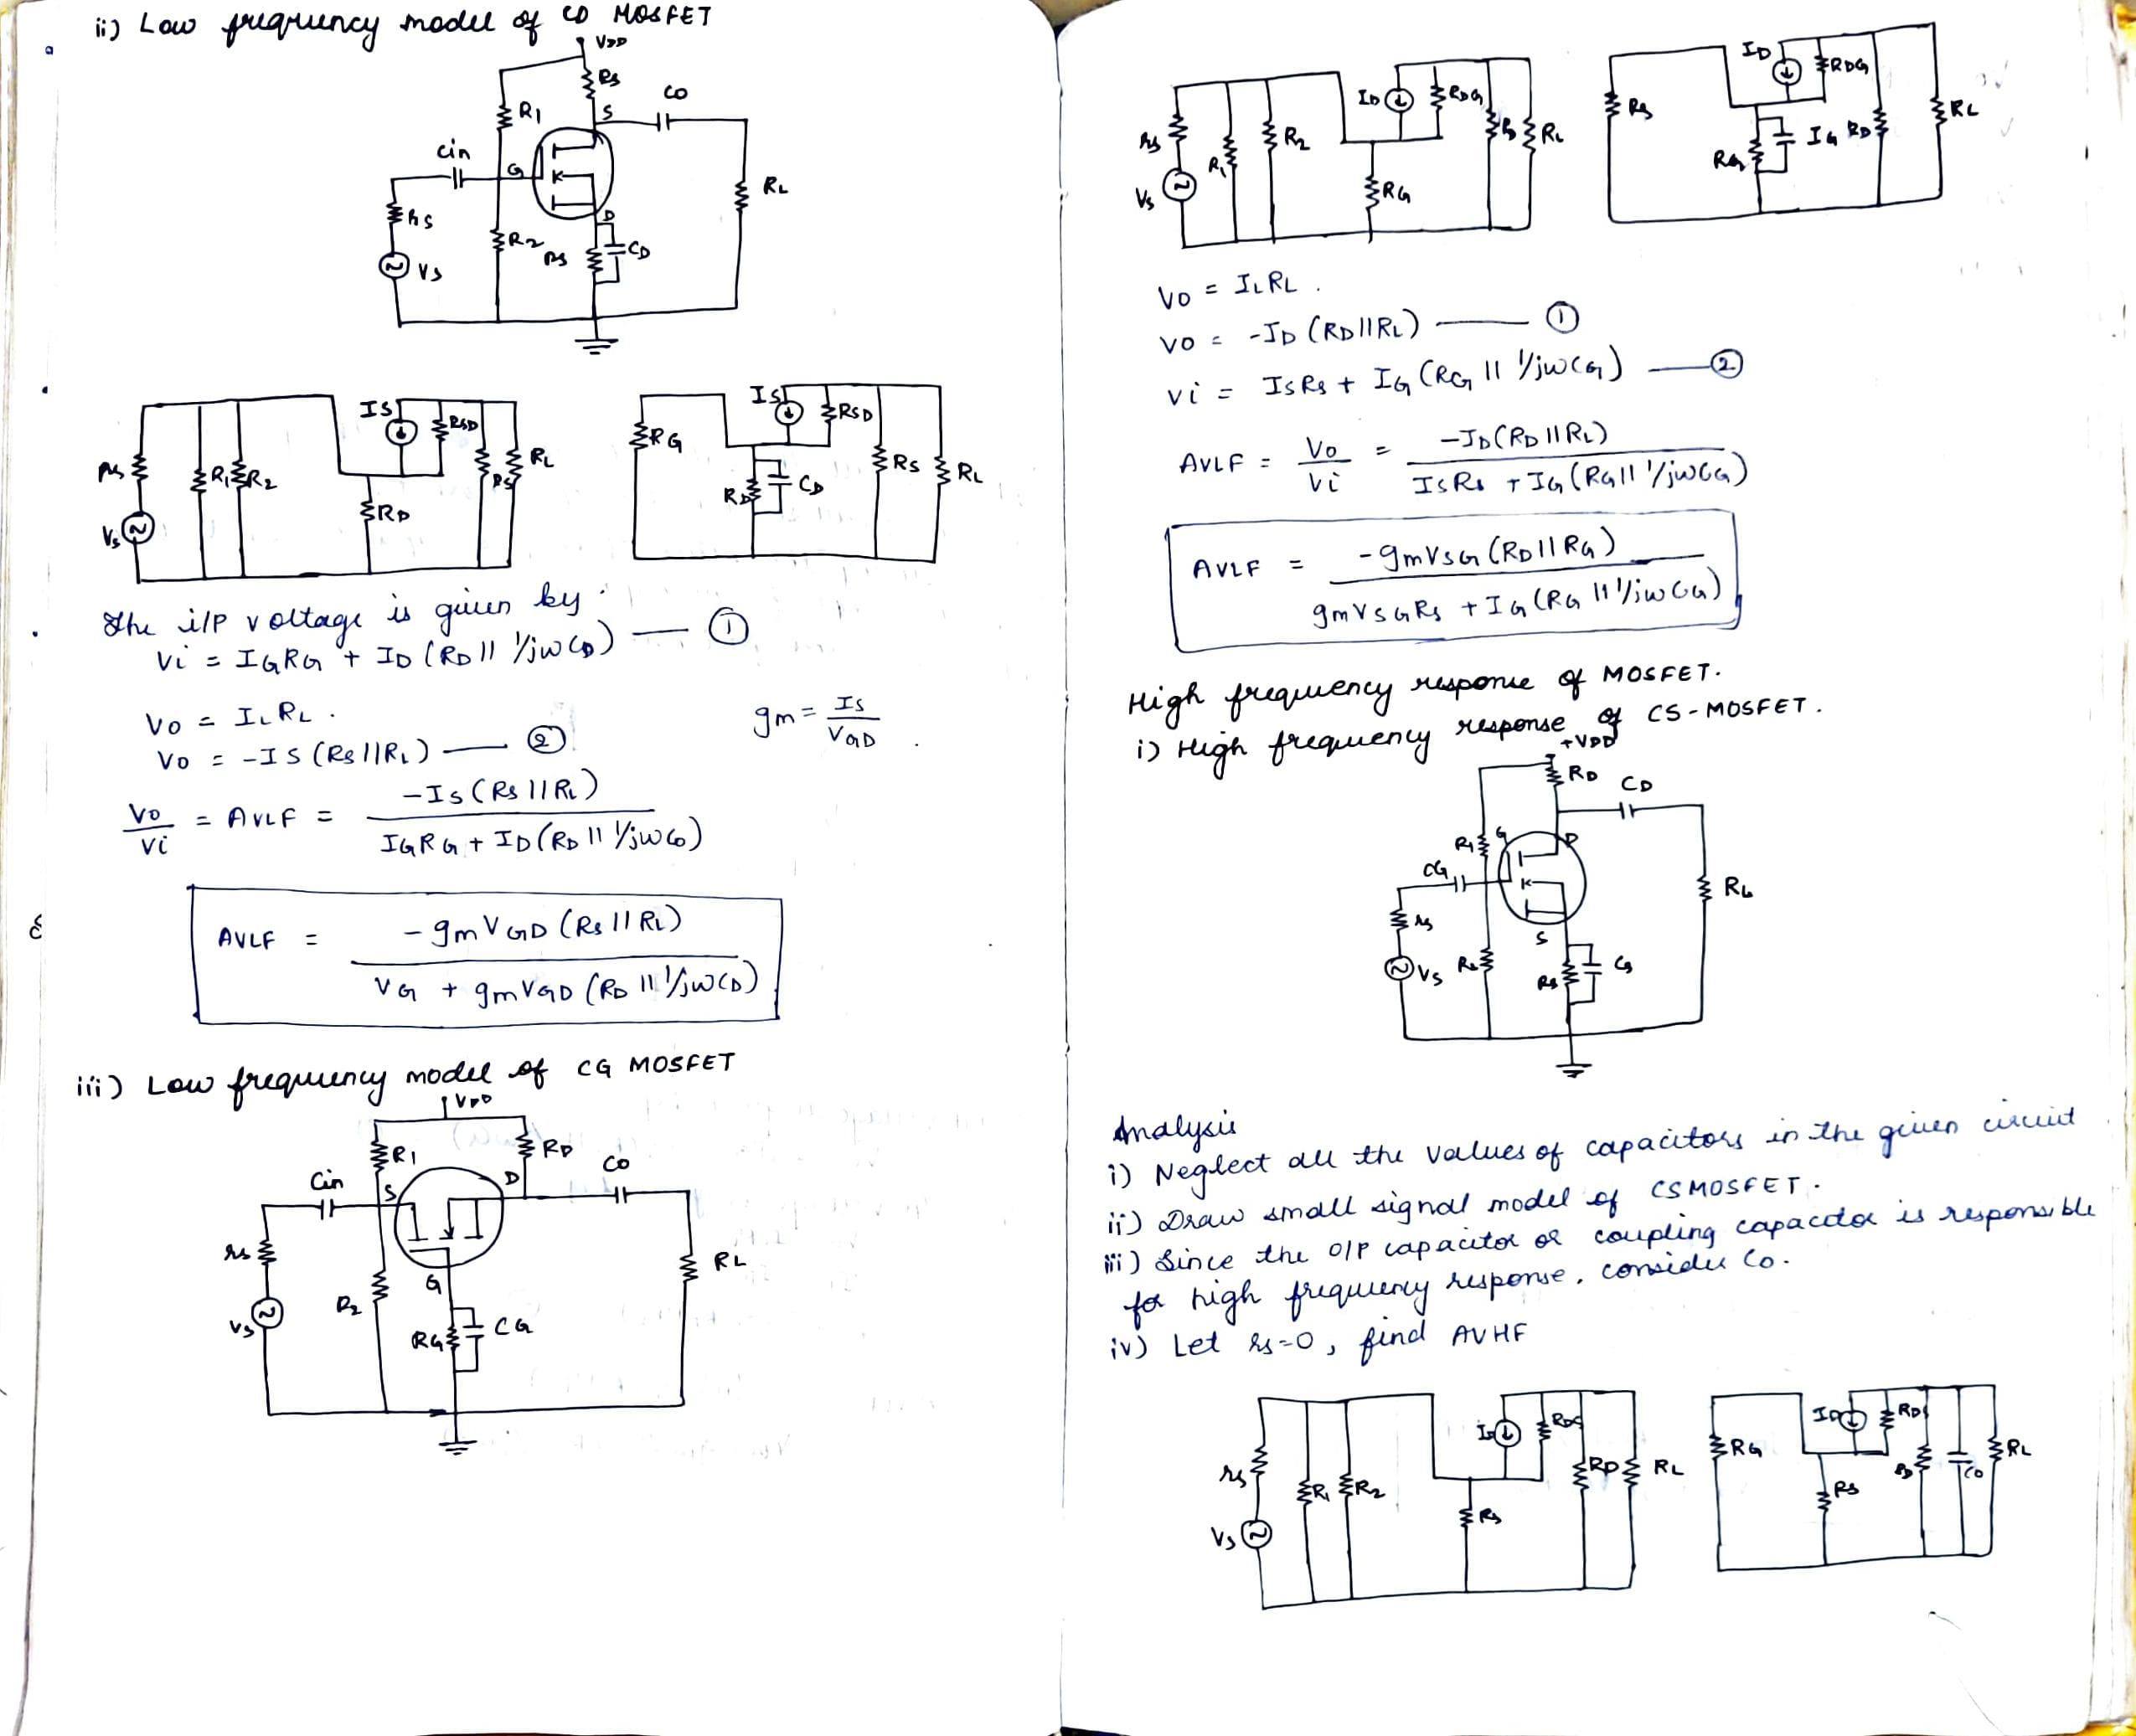 ii) Low frequency model of CD MOSFET
VDD
RS
CO
R1
S
Cin
G
K
RL
rs
D
R2
RS
CD
VS
IS
RSD
RL
rs
R1
R2
RS
RD
Vs
IS
RSD
RG
RS
RL
RD
CD
The i/p voltage is given by
Vi = IGRG + ID (RD || 1/jwCD) — ①
Vo = ILRL .
gm = IS / VGD .
Vo = -IS (RS||RL) — ②
Vo / Vi = AVLF = -IS (RS || RL) / IGRG + ID (RD || 1/jwCD)
AVLF = - gm VGD (RS || RL) / VG + gmVGD (RD || 1/jwCD)
iii) Low frequency model of CG MOSFET
VDD
R1
RD
Co
Cin
S
D
rs
RL
G
R2
Vs
RG
CG
ID
RDG
rs
R1
R2
RD
RL
Vs
RG
ID
RDG
RS
RL
IG
RD
RG
Vo = ILRL .
Vo = -ID (RD||RL) — ①
Vi = ISRS + IG (RG || 1/jwCG) — ②
AVLF = Vo / Vi = -ID (RD || RL) / ISRS + IG (RG || 1/jwCG)
AVLF = - gmVSG (RD || RG) / gmVSGRS + IG (RG || 1/jwCG)
High frequency response of MOSFET.
i) High frequency response of CS-MOSFET.
+VDD
RD
CD
R1
G
D
CG
K
RL
rs
S
VS
R2
RS
CS
Analysis
i) Neglect all the values of capacitors in the given circuit
ii) Draw small signal model of CSMOSFET.
iii) Since the O/P capacitor or coupling capacitor is responsible
for high frequency response, consider Co.
iv) Let rs=0, find AVHF
ID
RDS
rs
R1
R2
RD
RL
RS
Vs
ID
RDS
RG
RL
RD
CO
RS